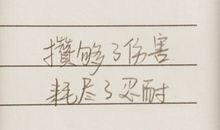 攒够了伤害
耗尽了忍耐